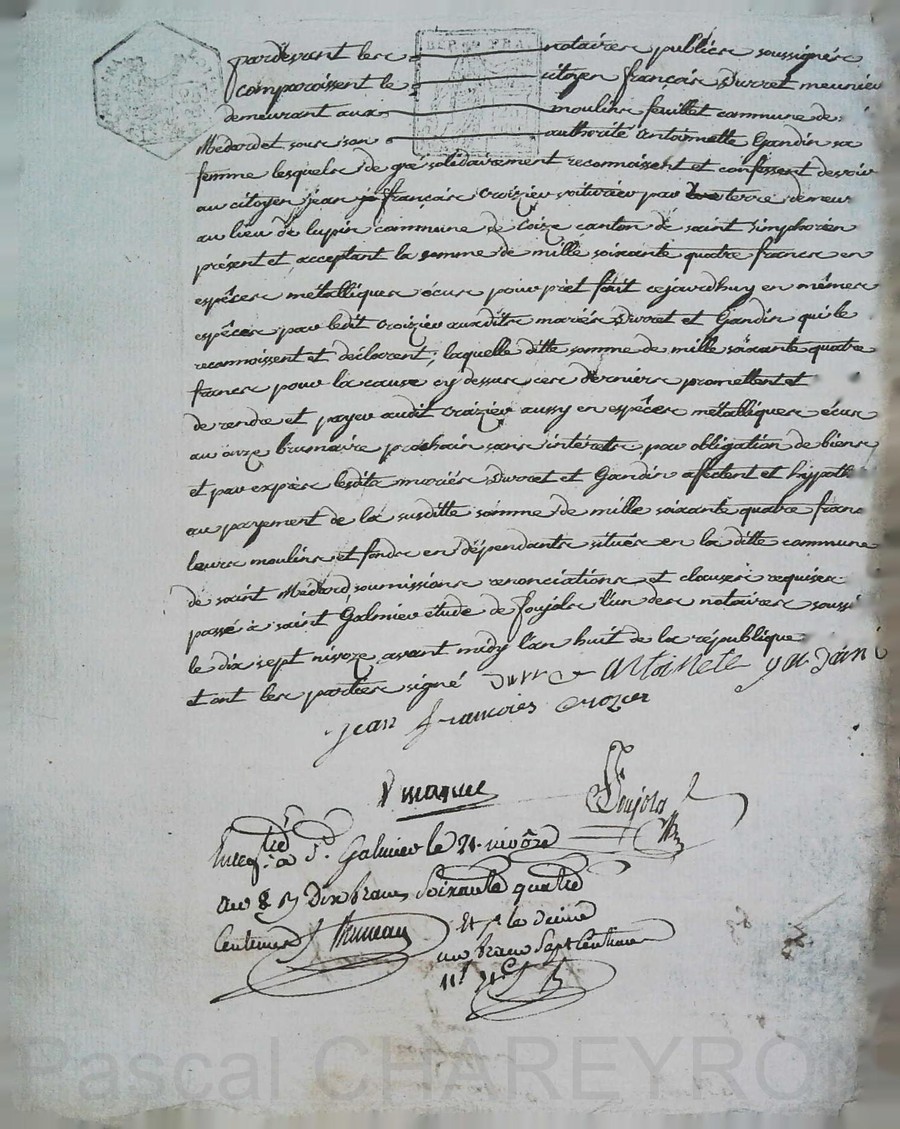 pardevant les notaires publics soussignés
comparoissent le citoyen françois Durret meunier
demeurant aux moulins feuillet commune de
Médard et sous son authorité antoinette Gandin sa
femme lesquels de gré solidairement reconnoissent et confessent devoir
au citoyen jean françois Croizier voiturier par terre demeur
au lieu de lupin commune de Coize canton de saint Simphorien
présent et acceptant la somme de mille soixante quatre francs en
espêces métalliques écus pour prêt fait cejourdhuy en mêmes
espêces par ledit Croizier auxdits mariés Durret et Gandin qui le
reconnoissent et déclarent, laquelle ditte somme de mille soixante quatre
francs pour la cause cy dessus ces derniers promettent et
de rendre et payer audit Croizier aussy en espêces métalliques écus
au onze brumaire prochain sans intérets. par obligation de biens
et par exprès lesdits mariés Durret et Gandin affectent et hypoth
au payement de la susditte somme de mille soixante quatre franc
leurs moulins et fonds en dépendants situés en la ditte commune
de saint Médard, soumissions renonciations et clauses requises
passé à saint Galmier etude de foujols l'un des notaires soussi
le dix sept nivoze avant midy l'an huit de la république
et ont les parties signé Durret antoinete
jean françois Crozier
Foujols
Enregtré à St. Galmier le 21 nivôse
an 8 Dix francs Soixante quatre
Centimes
Et pr le dixme
un franc Sept Centimes
Pascal CHAREYRO